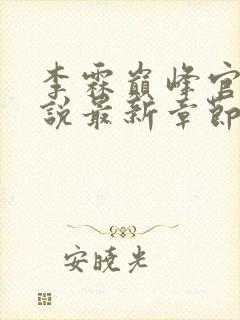 李霖巅峰官
說最新章節
安曉光